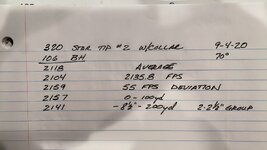 320 STAR TIP #2 W/COLLAR 9-4-20
106 BH 70°
2118 AVERAGE
2104 2135.8 FPS
2159 55 FPS DEVIATION
2157 0 - 100yd
2141 -8½" - 200yd 2-2½" GROUP